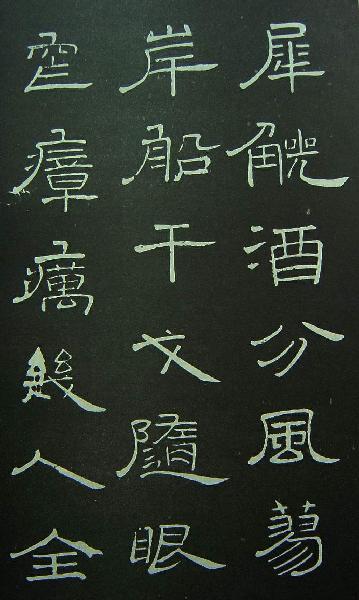 犀觥酒分風蕩
岸船干戈隨眼
空瘴癘幾人全